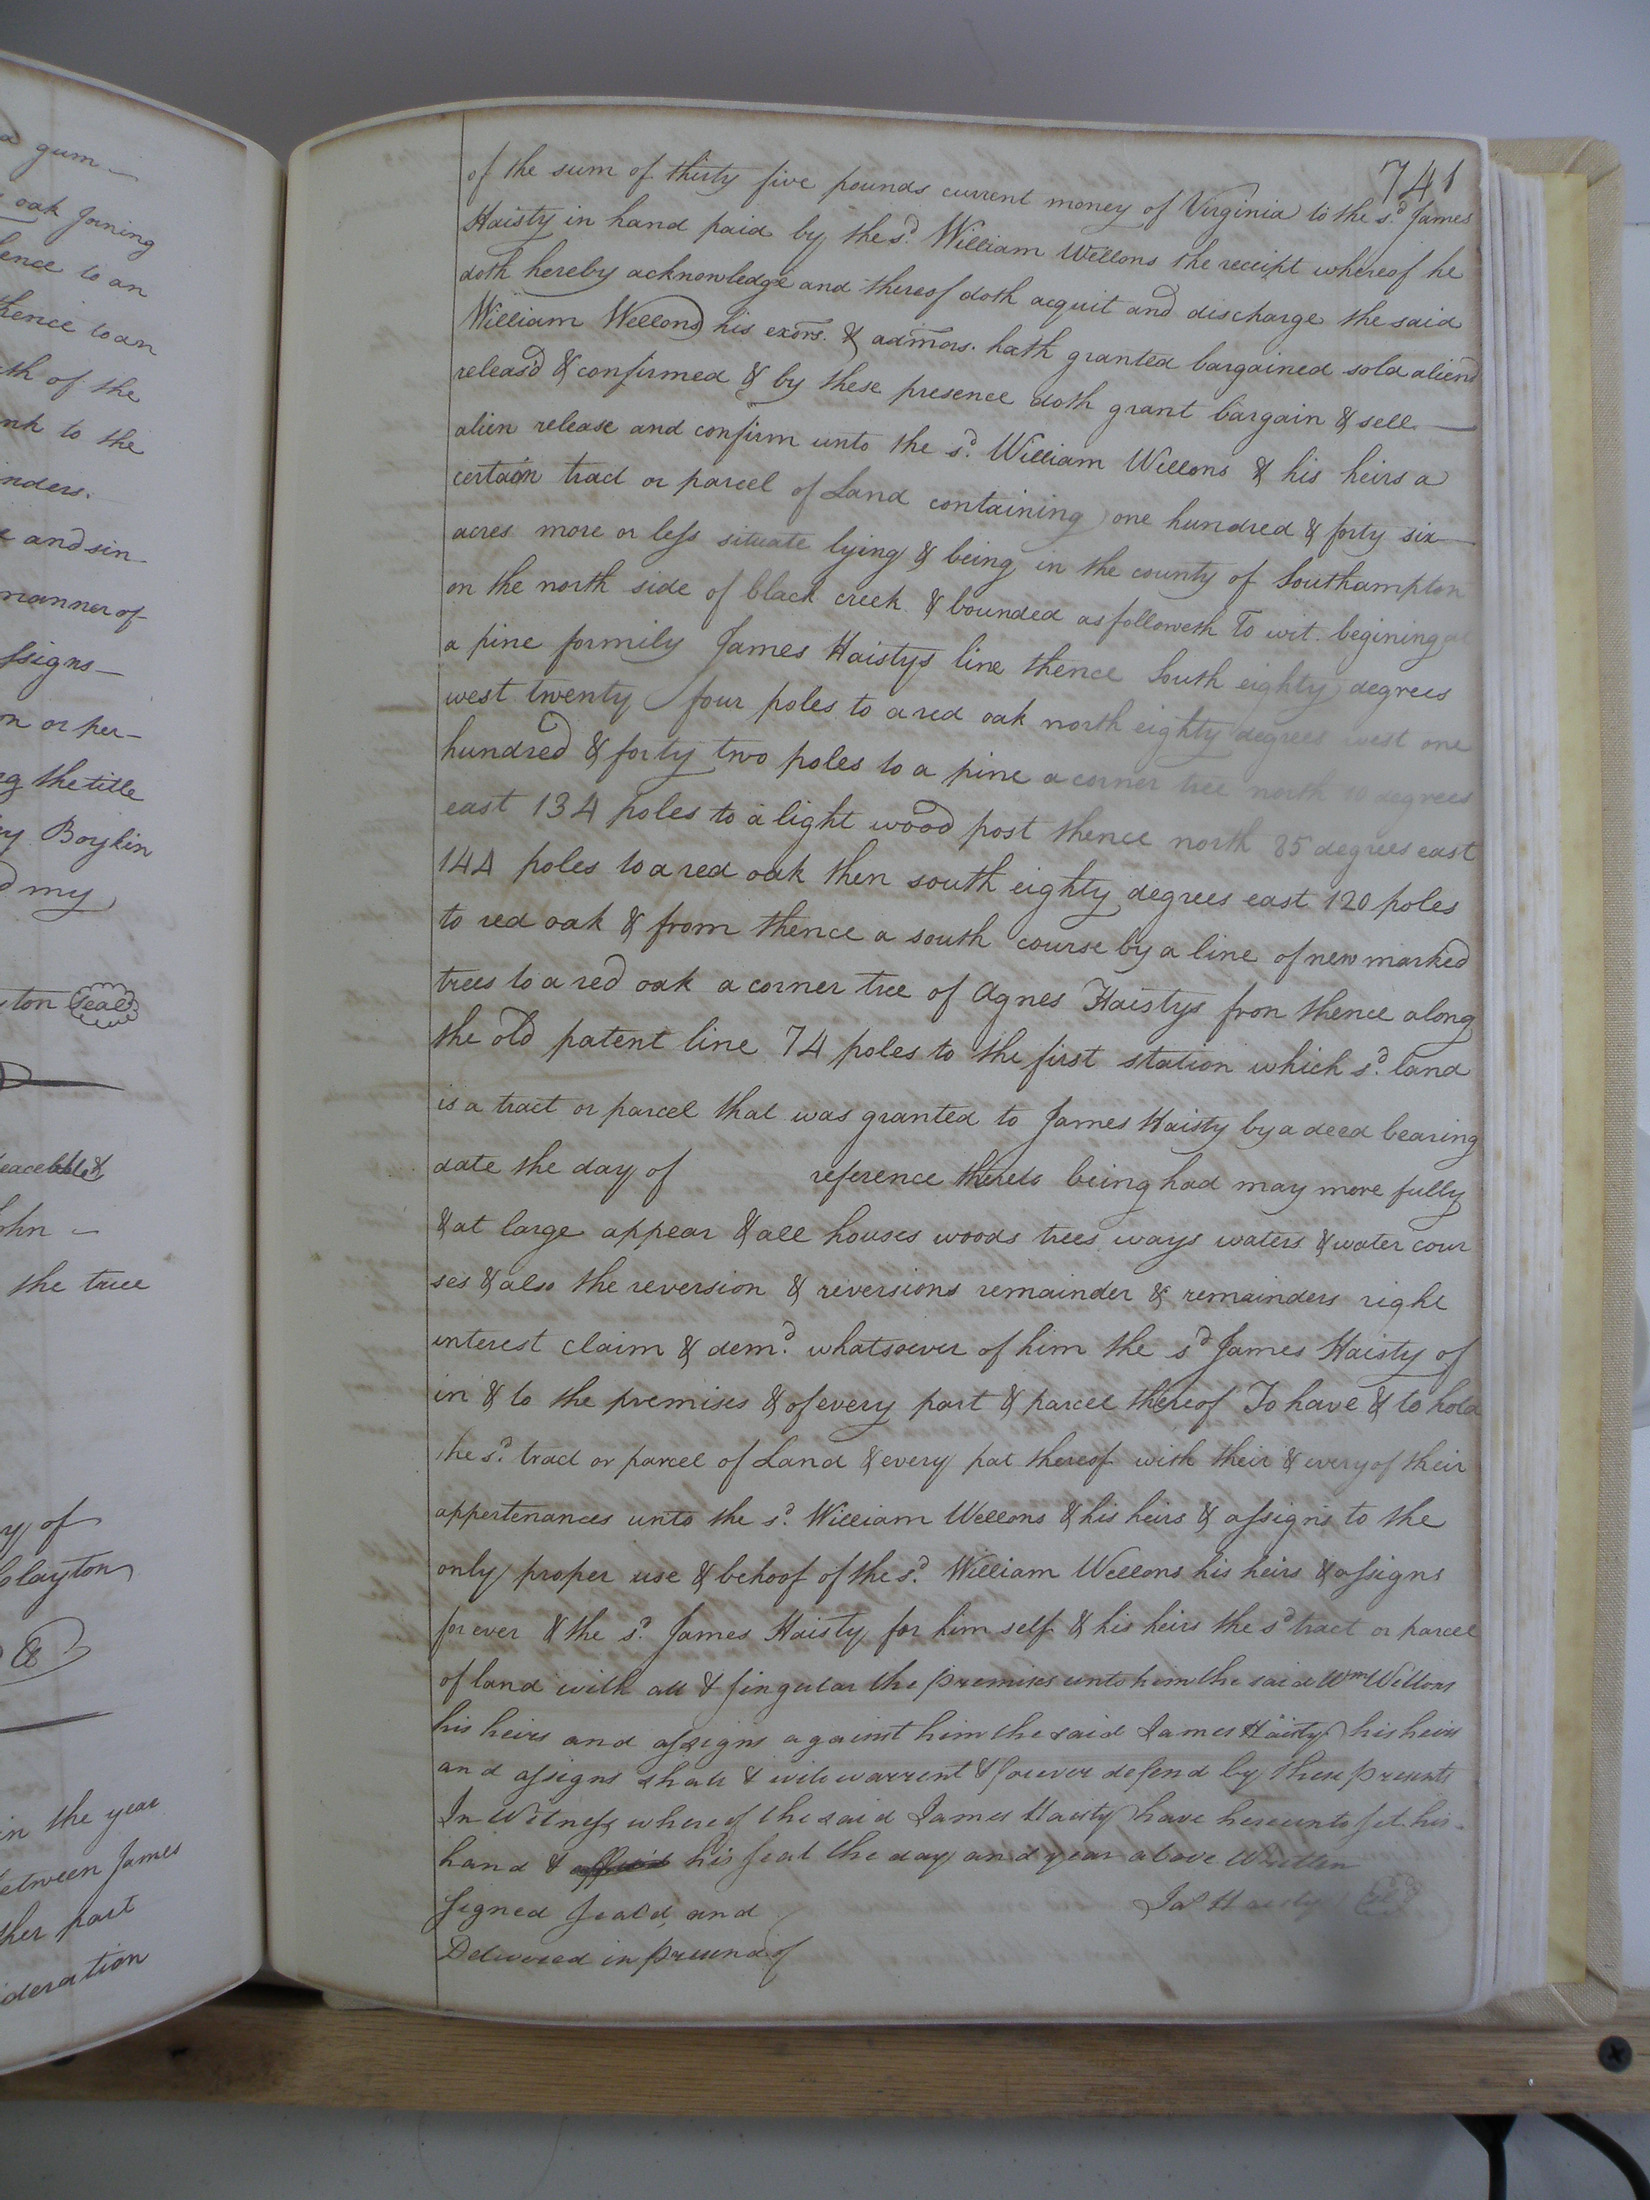 a gum —
oak Joining
hence to an
thence to an
th of the
nk to the
nders.
e and sin
manner of
ssigns —
n or per-
g the title
y Boykin
d my
ton Seal
peaceble &
ohn —
the true
y of
Clayton
in the year
etween James
ther part
ideration
741
of the sum of thirty five pounds current money of Virginia to the sd. James
Haisty in hand paid by the sd. William Wellons the receipt whereof he
doth hereby acknowledge and thereof doth acquit and discharge the said
William Wellons his exors. & admors. hath granted bargained sold aliend
releasd & confirmed & by these presence doth grant bargain & sell —
alien release and confirm unto the sd. William Wellons & his heirs a
certain tract or parcel of Land containing one hundred & forty six —
acres more or less situate lying & being in the county of Southampton
on the north side of black creek & bounded as followeth To wit. begining at
a pine formily James Haistys line thence South eighty degrees
west twenty four poles to a red oak north eighty degrees west one
hundred & forty two poles to a pine a corner tree north 10 degrees
east 134 poles to a light wood post thence north 85 degrees east
144 poles to a red oak then south eighty degrees east 120 poles
to red oak & from thence a south course by a line of new marked
trees to a red oak a corner tree of Agnes Haistys fron thence along
the old patent line 74 poles to the first station which sd. land
is a tract or parcel that was granted to James Haisty by a deed bearing
date the day of reference thereto being had may more fully
& at large appear & all houses woods trees ways waters & water cour
ses & also the reversion & reversions remainder & remainders right
interest claim & demd. whatsoever of him the sd James Haisty of
in & to the premises & of every part & parcel thereof To have & to hold
the sd. tract or parcel of Land & every pat thereof with their & every of their
appertenances unto the sd. William Wellons & his heirs & assigns to the
only proper use & behoof of the sd. William Wellons his heirs & assigns
for ever & the sd. James Haisty for him self & his heirs the sd tract or parcel
of land with all & singular the premises unto him the said Wm Wellons
his heirs and assigns against him the said James Haisty his heirs
and assigns shall & will warrent & forever defend by these presents
In Witness whereof the said James Haisty have hereunto set his
hand & his seal the day and year above Written
Signed seald and Jas Haisty
Delivered in presence of